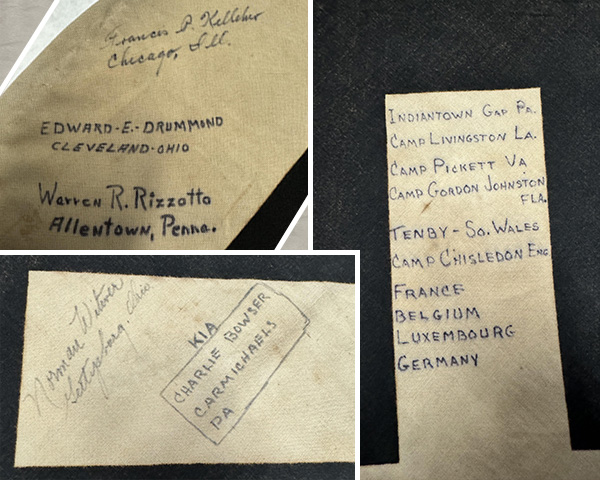 Francis P. Kelleher
Chicago, Ill.
EDWARD-E.-DRUMMOND
CLEVELAND-OHIO
Warren R. Rizzotto
Allentown, Penna.
Norman Witmer
Gettysburg, Ohio
KIA
CHARLIE BOWSER
CARMICHAELS
PA
INDIANTOWN GAP PA.
CAMP LIVINGSTON LA.
CAMP PICKETT VA
CAMP GORDON JOHNSTON
FLA.
TENBY - SO. WALES
CAMP CHISLEDON ENG
FRANCE
BELGIUM
LUXEMBOURG
GERMANY